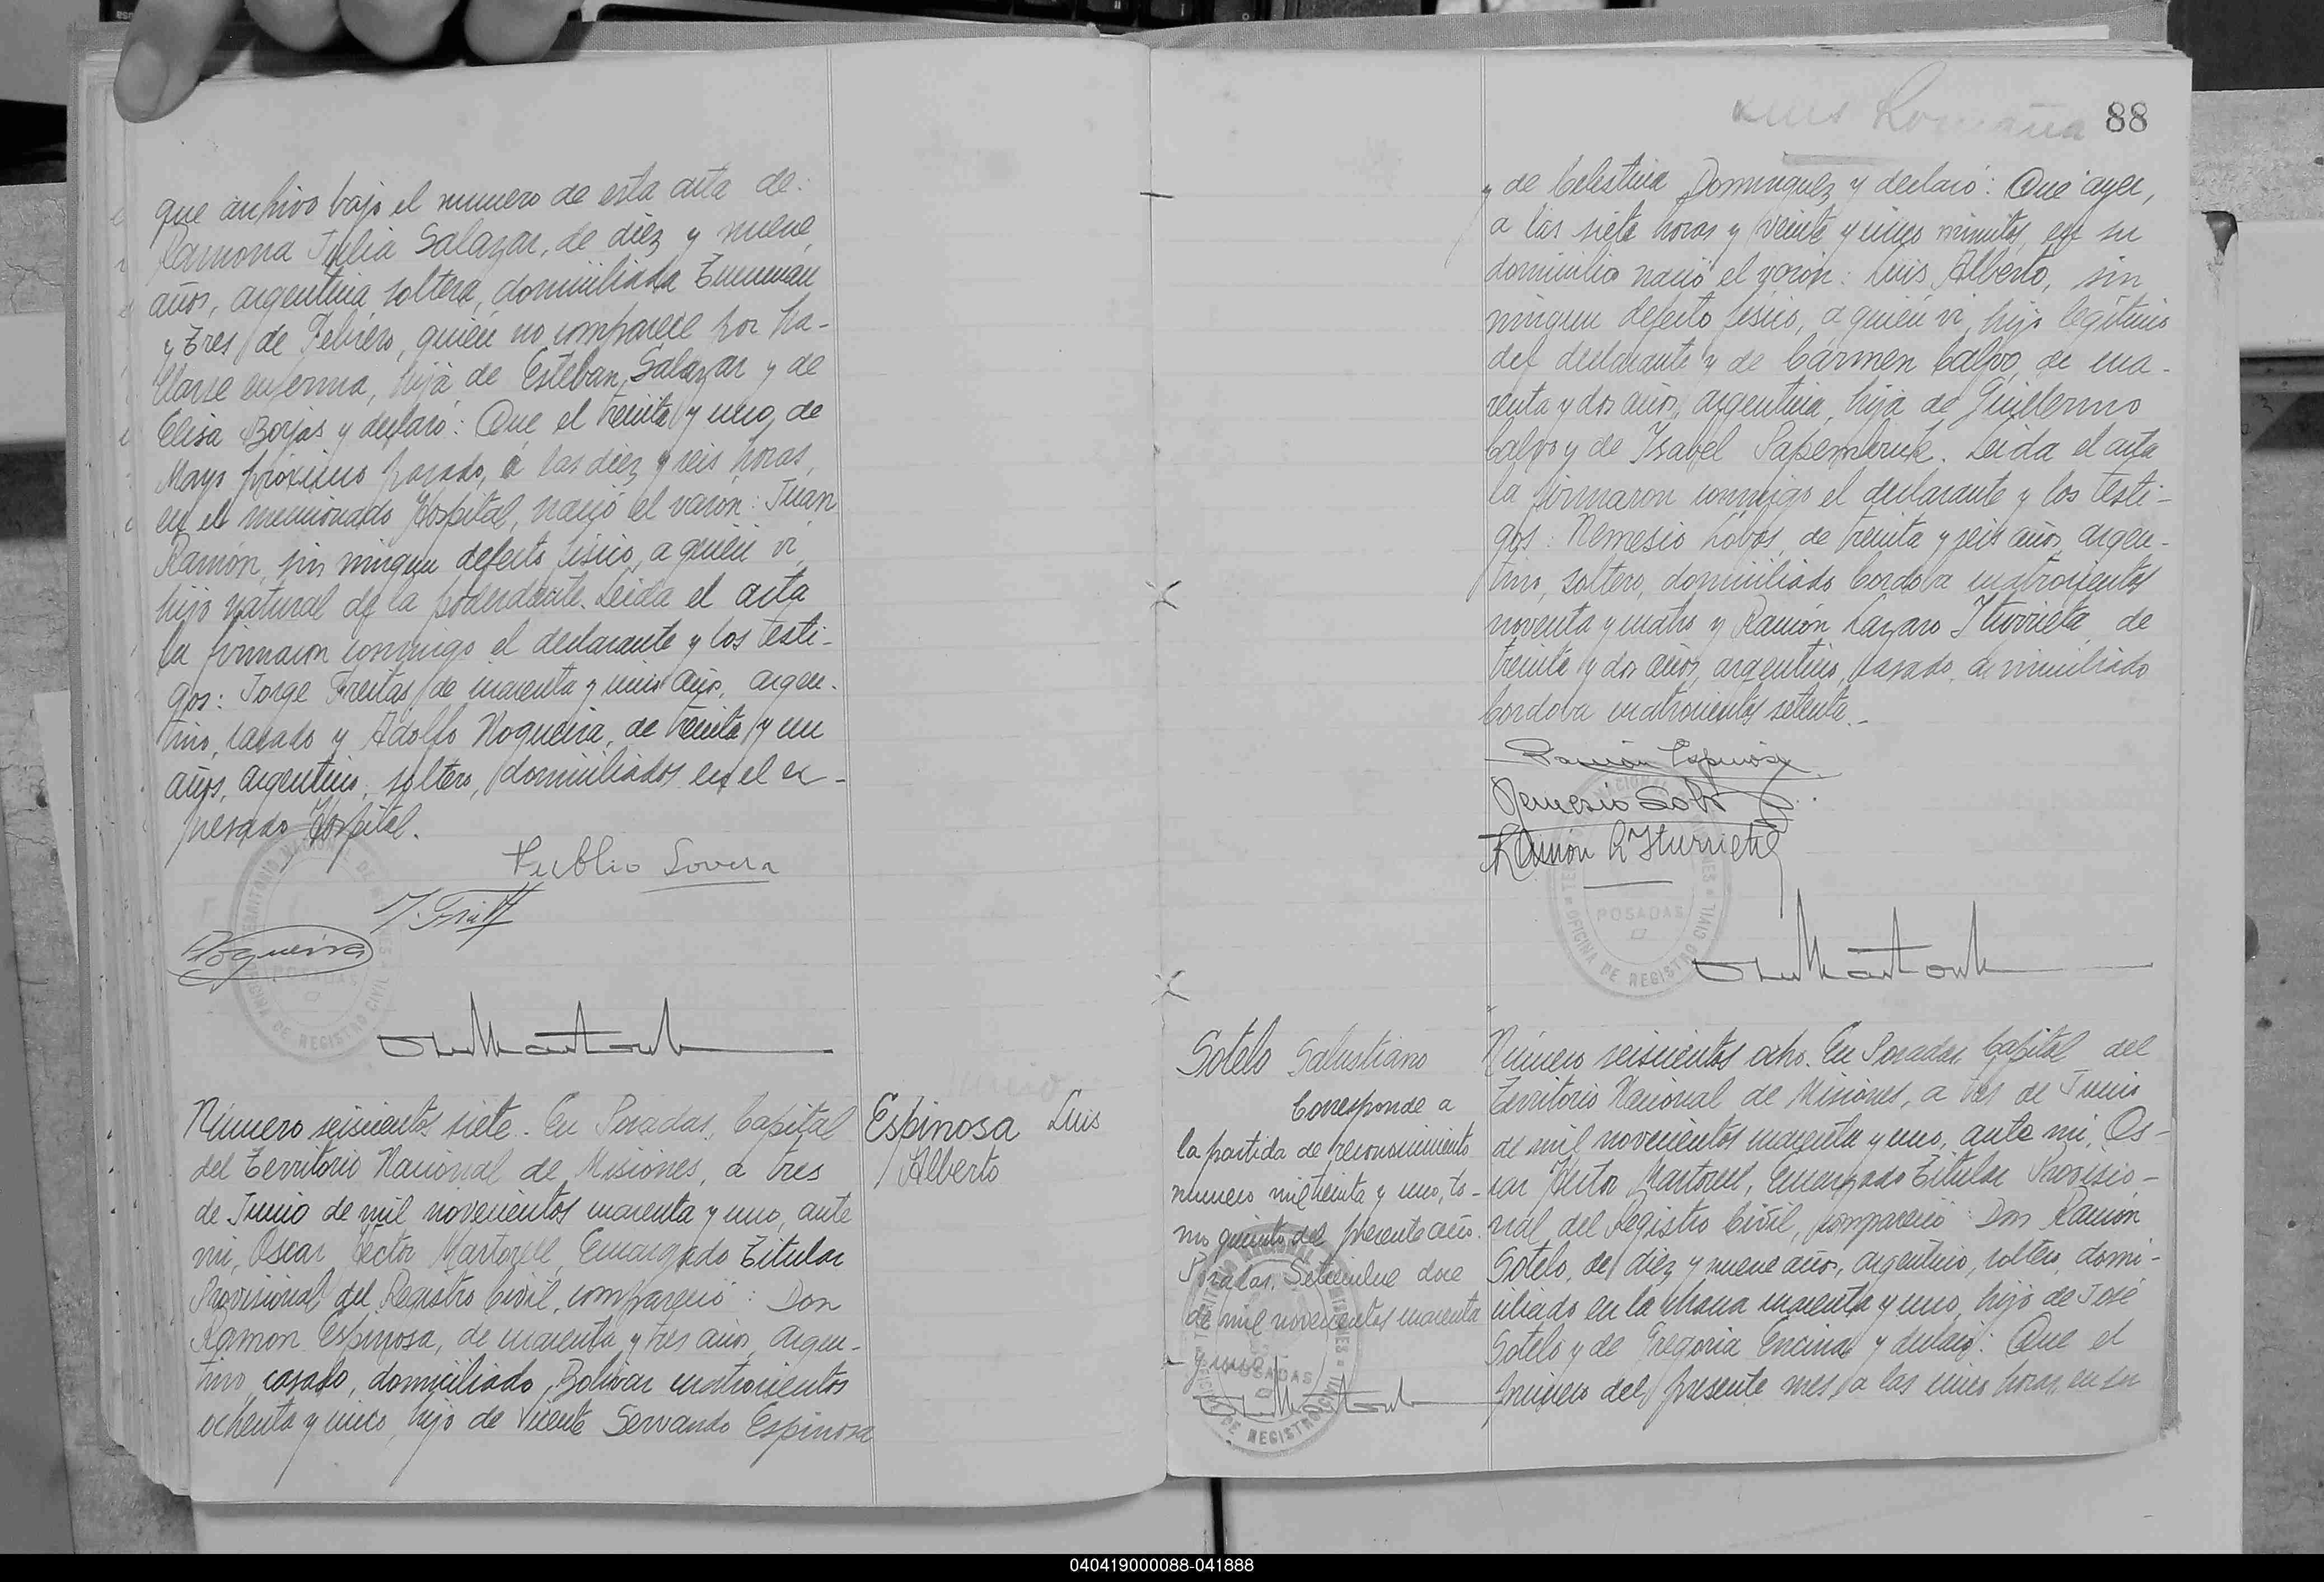 que archivo bajo el numero de esta acta de:
Ramona Julia Salazar, de diez y nueve
años, argentina, soltera, domiciliada Tucumán
y Tres de Febrero, quién no comparece por ha-
llarse enferma, hija de Esteban Salazar y de
Elisa Borjas y declaró: Que el treinta y uno de
Mayo próximo pasado, a las diez y seis horas,
en el mencionado Hospital, nació el varón: Juan
Ramón, sin ningun defecto fisico, a quién vi,
hijo natural de la poderdante. Leida el acta
la firmaron conmigo el declarante y los testi-
gos: Jorge Freitas, de cuarenta y cinco años, argen-
tino, casado y Adolfo Nogueira, de treinta y un
años, argentino, soltero, domiciliados en el ex-
presado Hospital.
Publio Lovera
Nogueira
POSADAS
OFICINA DE REGISTRO CIVIL
Número seiscientos siete. En Posadas, Capital
del Territorio Nacional de Misiones, a tres
de Junio de mil novecientos cuarenta y uno, ante
mi, Oscar Héctor Martorell, Encargado Titular
Provisional del Registro Civil, compareció: Don
Ramon Espinosa, de cuarenta y tres años, argen-
tino, casado, domiciliado Bolivar cuatrocientos
ochenta y cinco, hijo de Vicente Servando Espinosa
Espinosa Luis
Alberto
Luis Romaña
88
y de Celestina Dominguez y declaró: Que ayer,
a las siete horas y veinte y cinco minutos, en su
domicilio nació el varón: Luis Alberto, sin
ningun defecto fisico, a quién vi, hijo legítimo
del declarante y de Cármen Calvo, de cua-
renta y dos años, argentina, hija de Guillermo
Calvo y de Isabel Papembruk. Leida el acta
la firmaron conmigo el declarante y los testi-
gos: Nemesio Lobos, de treinta y seis años, argen-
tino, soltero, domiciliado Cordoba cuatrocientos
noventa y cuatro y Ramón Lazaro Iturrieta, de
treinta y dos años, argentino, casado, domiciliado
Cordoba cuatrocientos setenta.-
Ramón Espinosa
Nemesio Lobos
Ramón L Iturrieta
POSADAS
OFICINA DE REGISTRO CIVIL
Sotelo Salustiano
Corresponde a
la partida de reconocimiento
numero mil treinta y uno, to-
mo quinto del presente año.
Posadas, Setiembre doce
de mil novecientos cuarenta
y uno.-
POSADAS
DE REGISTRO CIVIL
Número seiscientos ocho. En Posadas, Capital del
Territorio Nacional de Misiones, a tres de Junio
de mil novecientos cuarenta y uno, ante mi, Os-
car Héctor Martorell, Encargado Titular Provisio-
nal del Registro Civil, compareció: Don Ramón
Sotelo, de diez y nueve años, argentino, soltero, domi-
ciliado en la chacra cuarenta y uno, hijo de José
Sotelo y de Gregoria Encina y declaró: Que el
primero del presente mes, a las cinco horas, en su
040419000088-041888